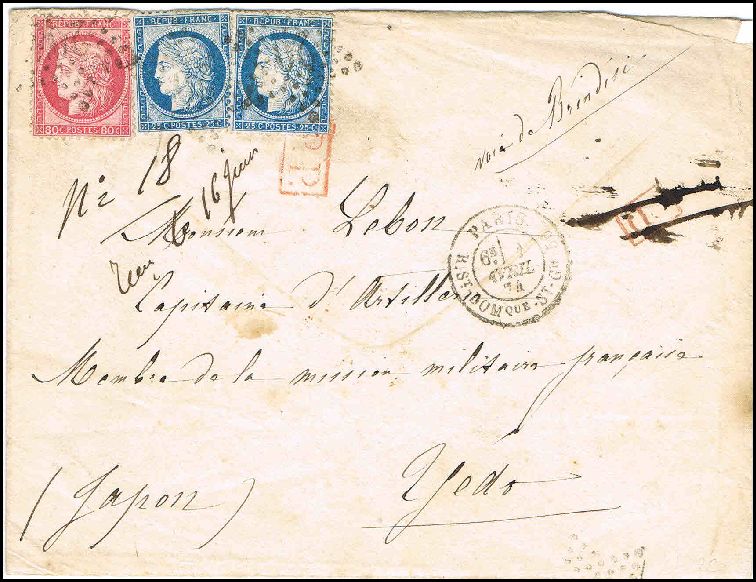 REPUB. FRANC. REPUB. FRANC. REPUB. FRANC.
80 C. POSTES 80 C. 25 C. POSTES 25 C. 25 C. POSTES 25 C.
voie de Brindisi
N° 18
16 juin
P.D.
P.D.
Monsieur Lebon
PARIS
6E
AVRIL
74
R. ST. DOMQUE. ST. GN
Capitaine d'Artillerie
Membre de la mission militaire française
Yedo
(Japon)